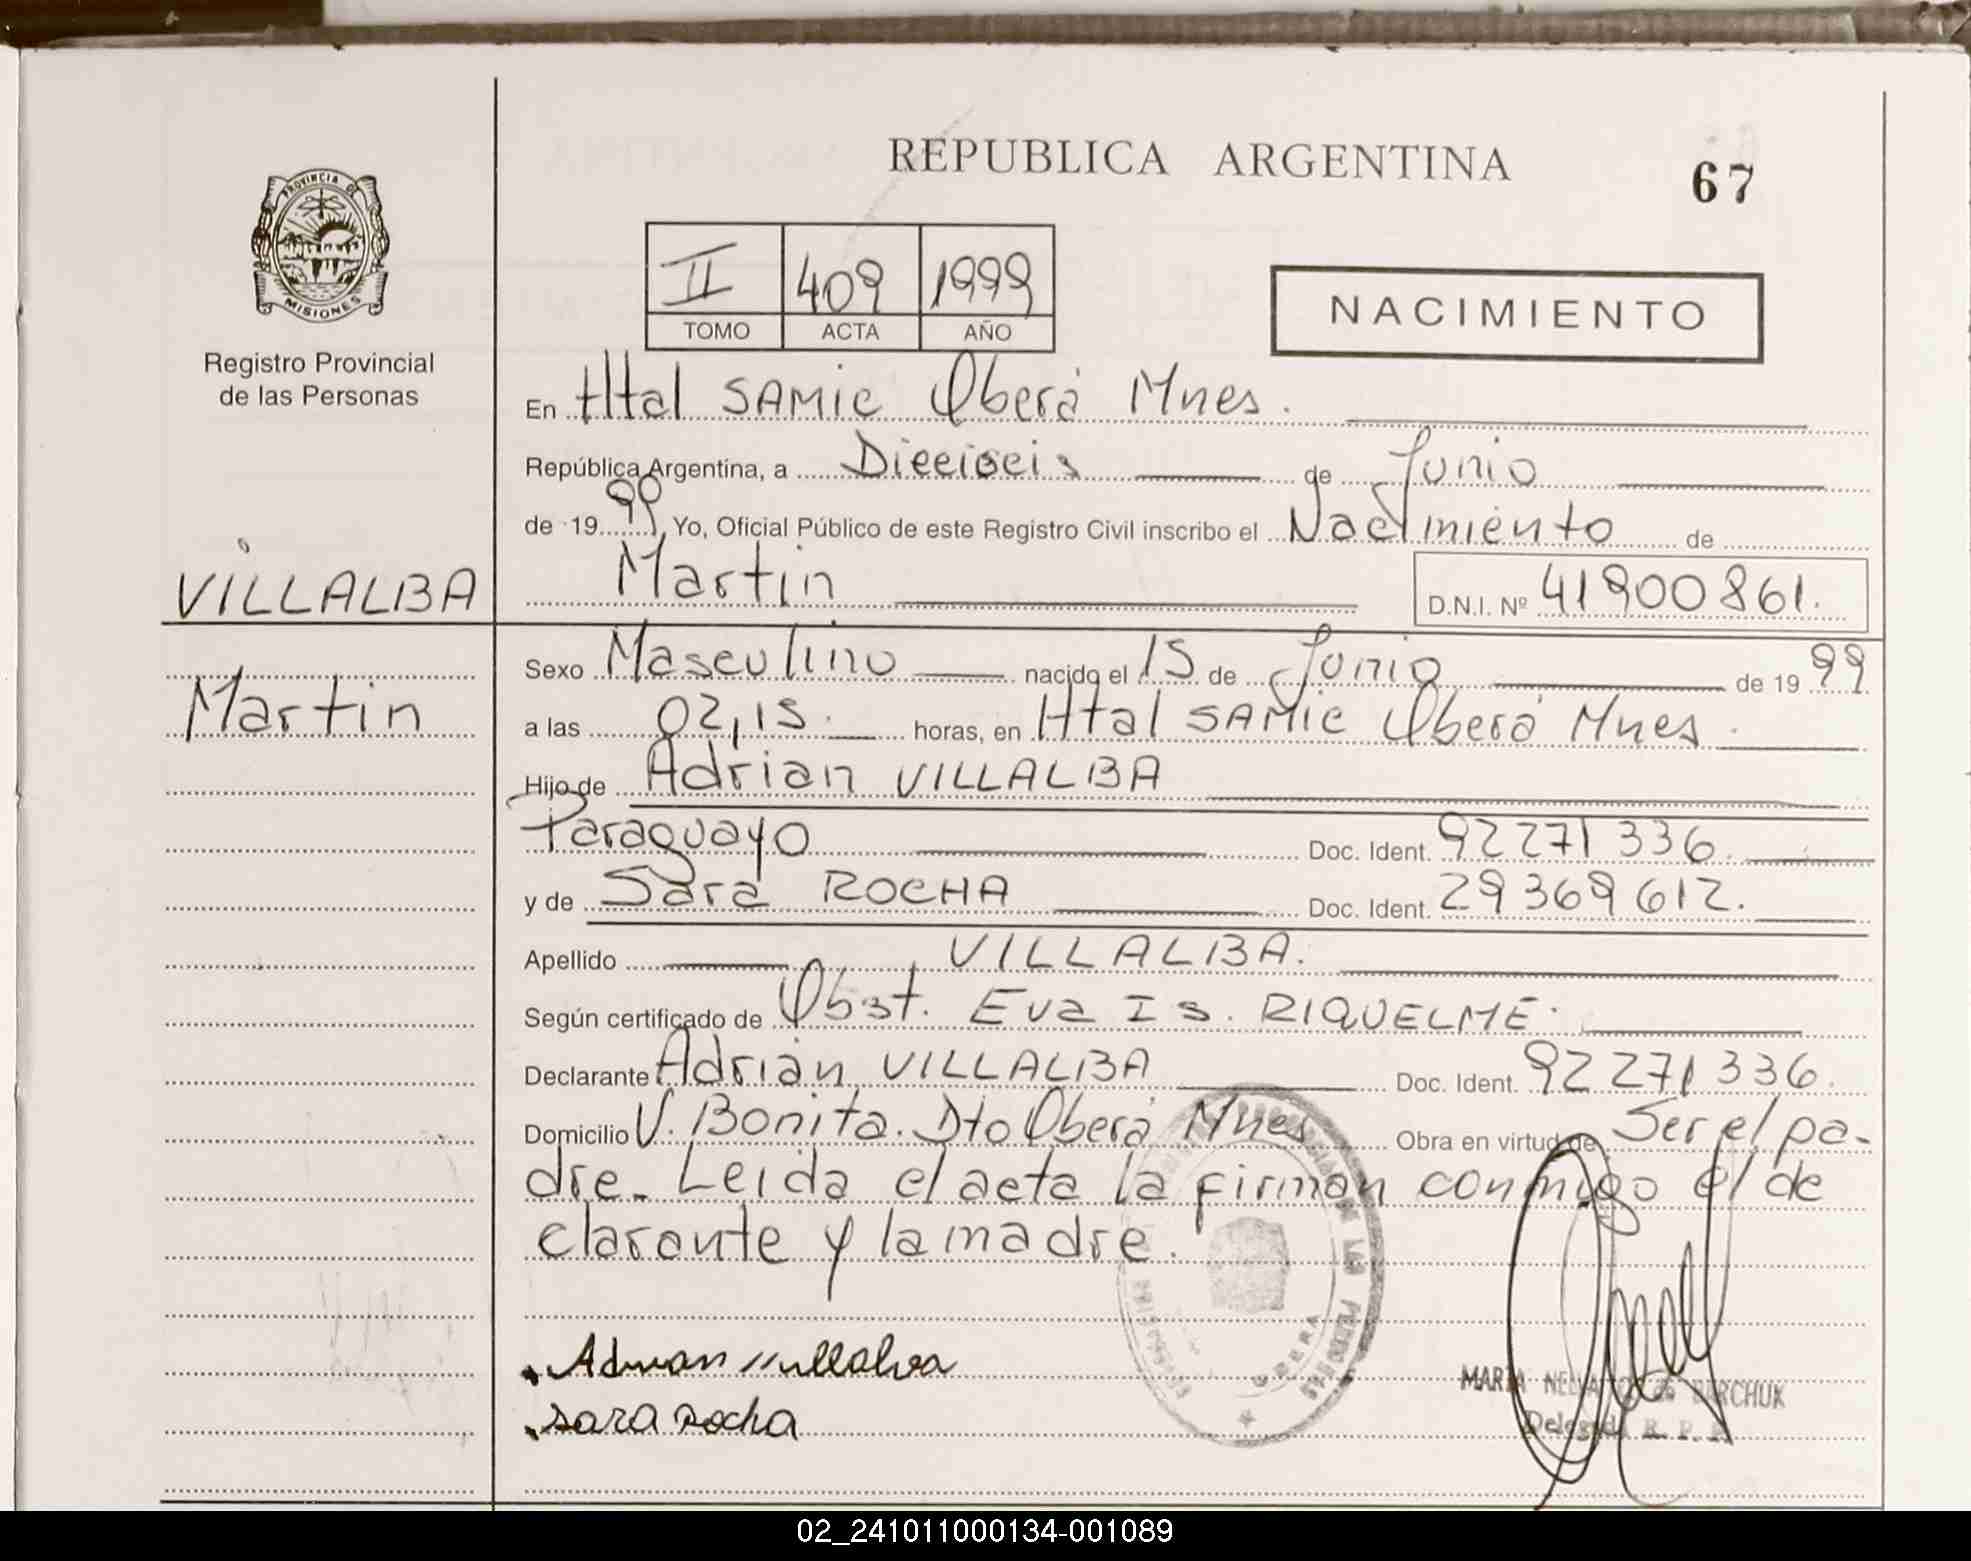 REPUBLICA ARGENTINA
67
PROVINCIA DE
MISIONES
Registro Provincial
de las Personas
II 409 1999
TOMO ACTA AÑO
NACIMIENTO
En Htal SAMIC Oberá Mnes.
República Argentina, a Dieciseis de Junio
de 1999, Yo, Oficial Público de este Registro Civil inscribo el Nacimiento de
Martin D.N.I. Nº 41900861.
VILLALBA
Martin
Sexo Masculino nacido el 15 de Junio de 1999
a las 02,15. horas, en Htal SAMIC Oberá Mnes.
Hijo de Adrian VILLALBA
Paraguayo Doc. Ident. 92271336.
y de Sara ROCHA Doc. Ident. 29369612.
Apellido VILLALBA.
Según certificado de Obst. Eva Is. RIQUELME.
Declarante Adrián VILLALBA Doc. Ident. 92271336.
Domicilio V. Bonita. Dto Oberá Mnes Obra en virtud de Ser el pa-
dre. Leida el acta la firman conmigo el de
clarante y la madre.
Adrian Villalva
Sara Rocha
MARIA
Delegada R. P. P.
02_241011000134-001089